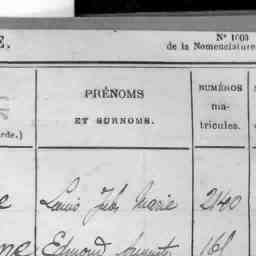 E.
N° 1003
de la Nomenclature
PRÉNOMS
ET SURNOMS.
NUMÉROS
ma-
tricules.
arde.)
Louis Jules Marie 2140
Edmond August 161